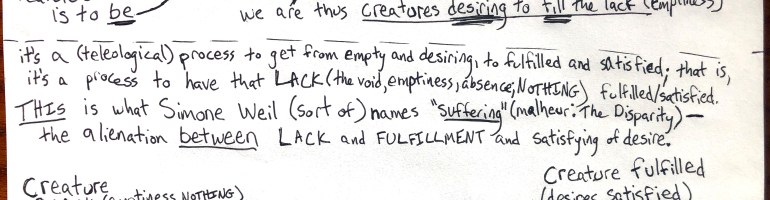 is to be
we are thus creatures desiring to fill the lack (emptiness)
it's a (teleological) process to get from empty and desiring, to fulfilled and satisfied; that is,
it's a process to have that LACK (the void, emptiness, absence; NOTHING) fulfilled/satisfied.
THIS is what Simone Weil (sort of) names "suffering" (malheur: The Disparity) —
the alienation between LACK and FULFILLMENT and satisfying of desire.
Creature
Creature fulfilled
NOTHING)
(desires satisfied)